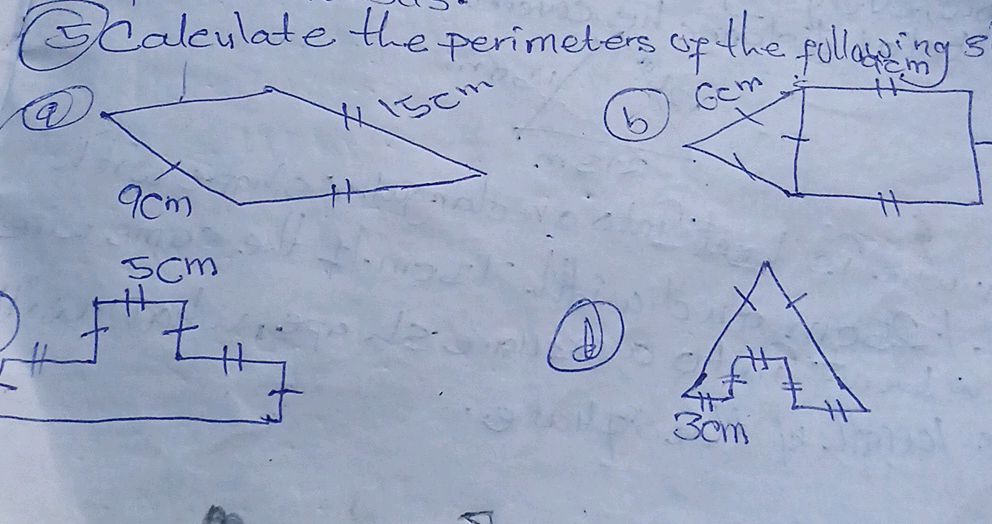 5 Calculate the perimeters of the following s
a 15cm
9cm
b 6cm 9cm
5cm
d
3cm